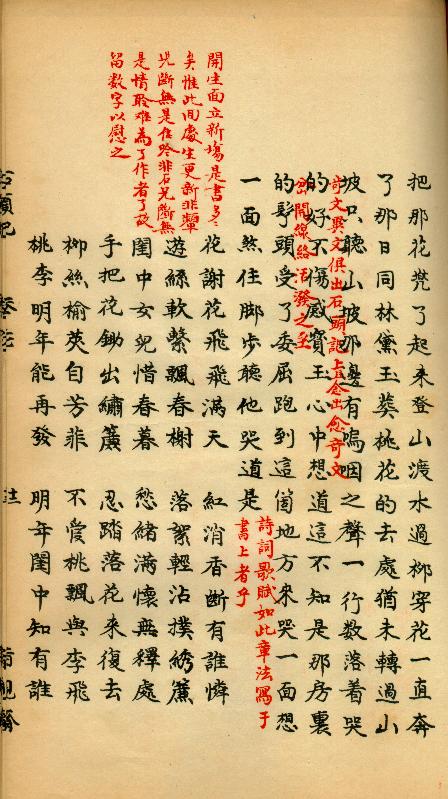 開生面立新塲是書多多
矣惟此回處生更新非顰
兒斷無是佳吟非石兄斷無
是情聆難為了作者了故
留数字以慰之
把那花兠了起來登山渡水過柳穿花一直奔
了那日同林黛玉葬桃花的去處猶未轉過山
奇文異文俱出石頭記上念出愈奇文
坡只聽山坡那邊有嗚咽之聲一行数落着哭
岔開線絡活潑之至
的好不傷感寶玉心中想道這不知是那房裏
的丫頭受了委屈跑到這個地方來哭一面想
一面煞住脚步聽他哭道是
詩詞歌賦如此章法寫于
書上者乎
花謝花飛飛滿天　紅消香斷有誰憐
遊絲軟繫飄春榭　落絮輕沾撲綉簾
閨中女兒惜春暮　愁緒滿懷無釋處
手把花鋤出繡簾　忍踏落花來復去
柳絲榆莢自芳菲　不愛桃飄與李飛
桃李明年能再發　明年閨中知有誰